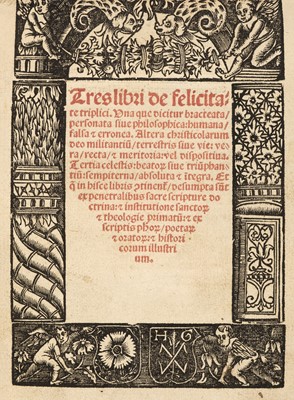 Tres libri de felicita⸗
te triplici. Una que dicitur bracteata/
personata siue philosophica: humana/
falsa & erronea. Altera christicolarum
deo militantiũ/ terrestris siue vie: ve⸗
ra/ recta/ & meritoria: vel dispositiua.
Tertia celestis: beatoꝝ siue triũphan⸗
tiũ: sempiterna/ absoluta & ĩtegra. Et
q̃ in hisce libris ↄtinent̃/ desumpta sũt
ex penetralibus sacre scripture do
ctrina: & institutione sanctoꝝ
& theologie primatũ: & ex
scriptis phõꝝ/ poetaꝝ
& oratoꝝ: & histori
corum illustri
um.
H G